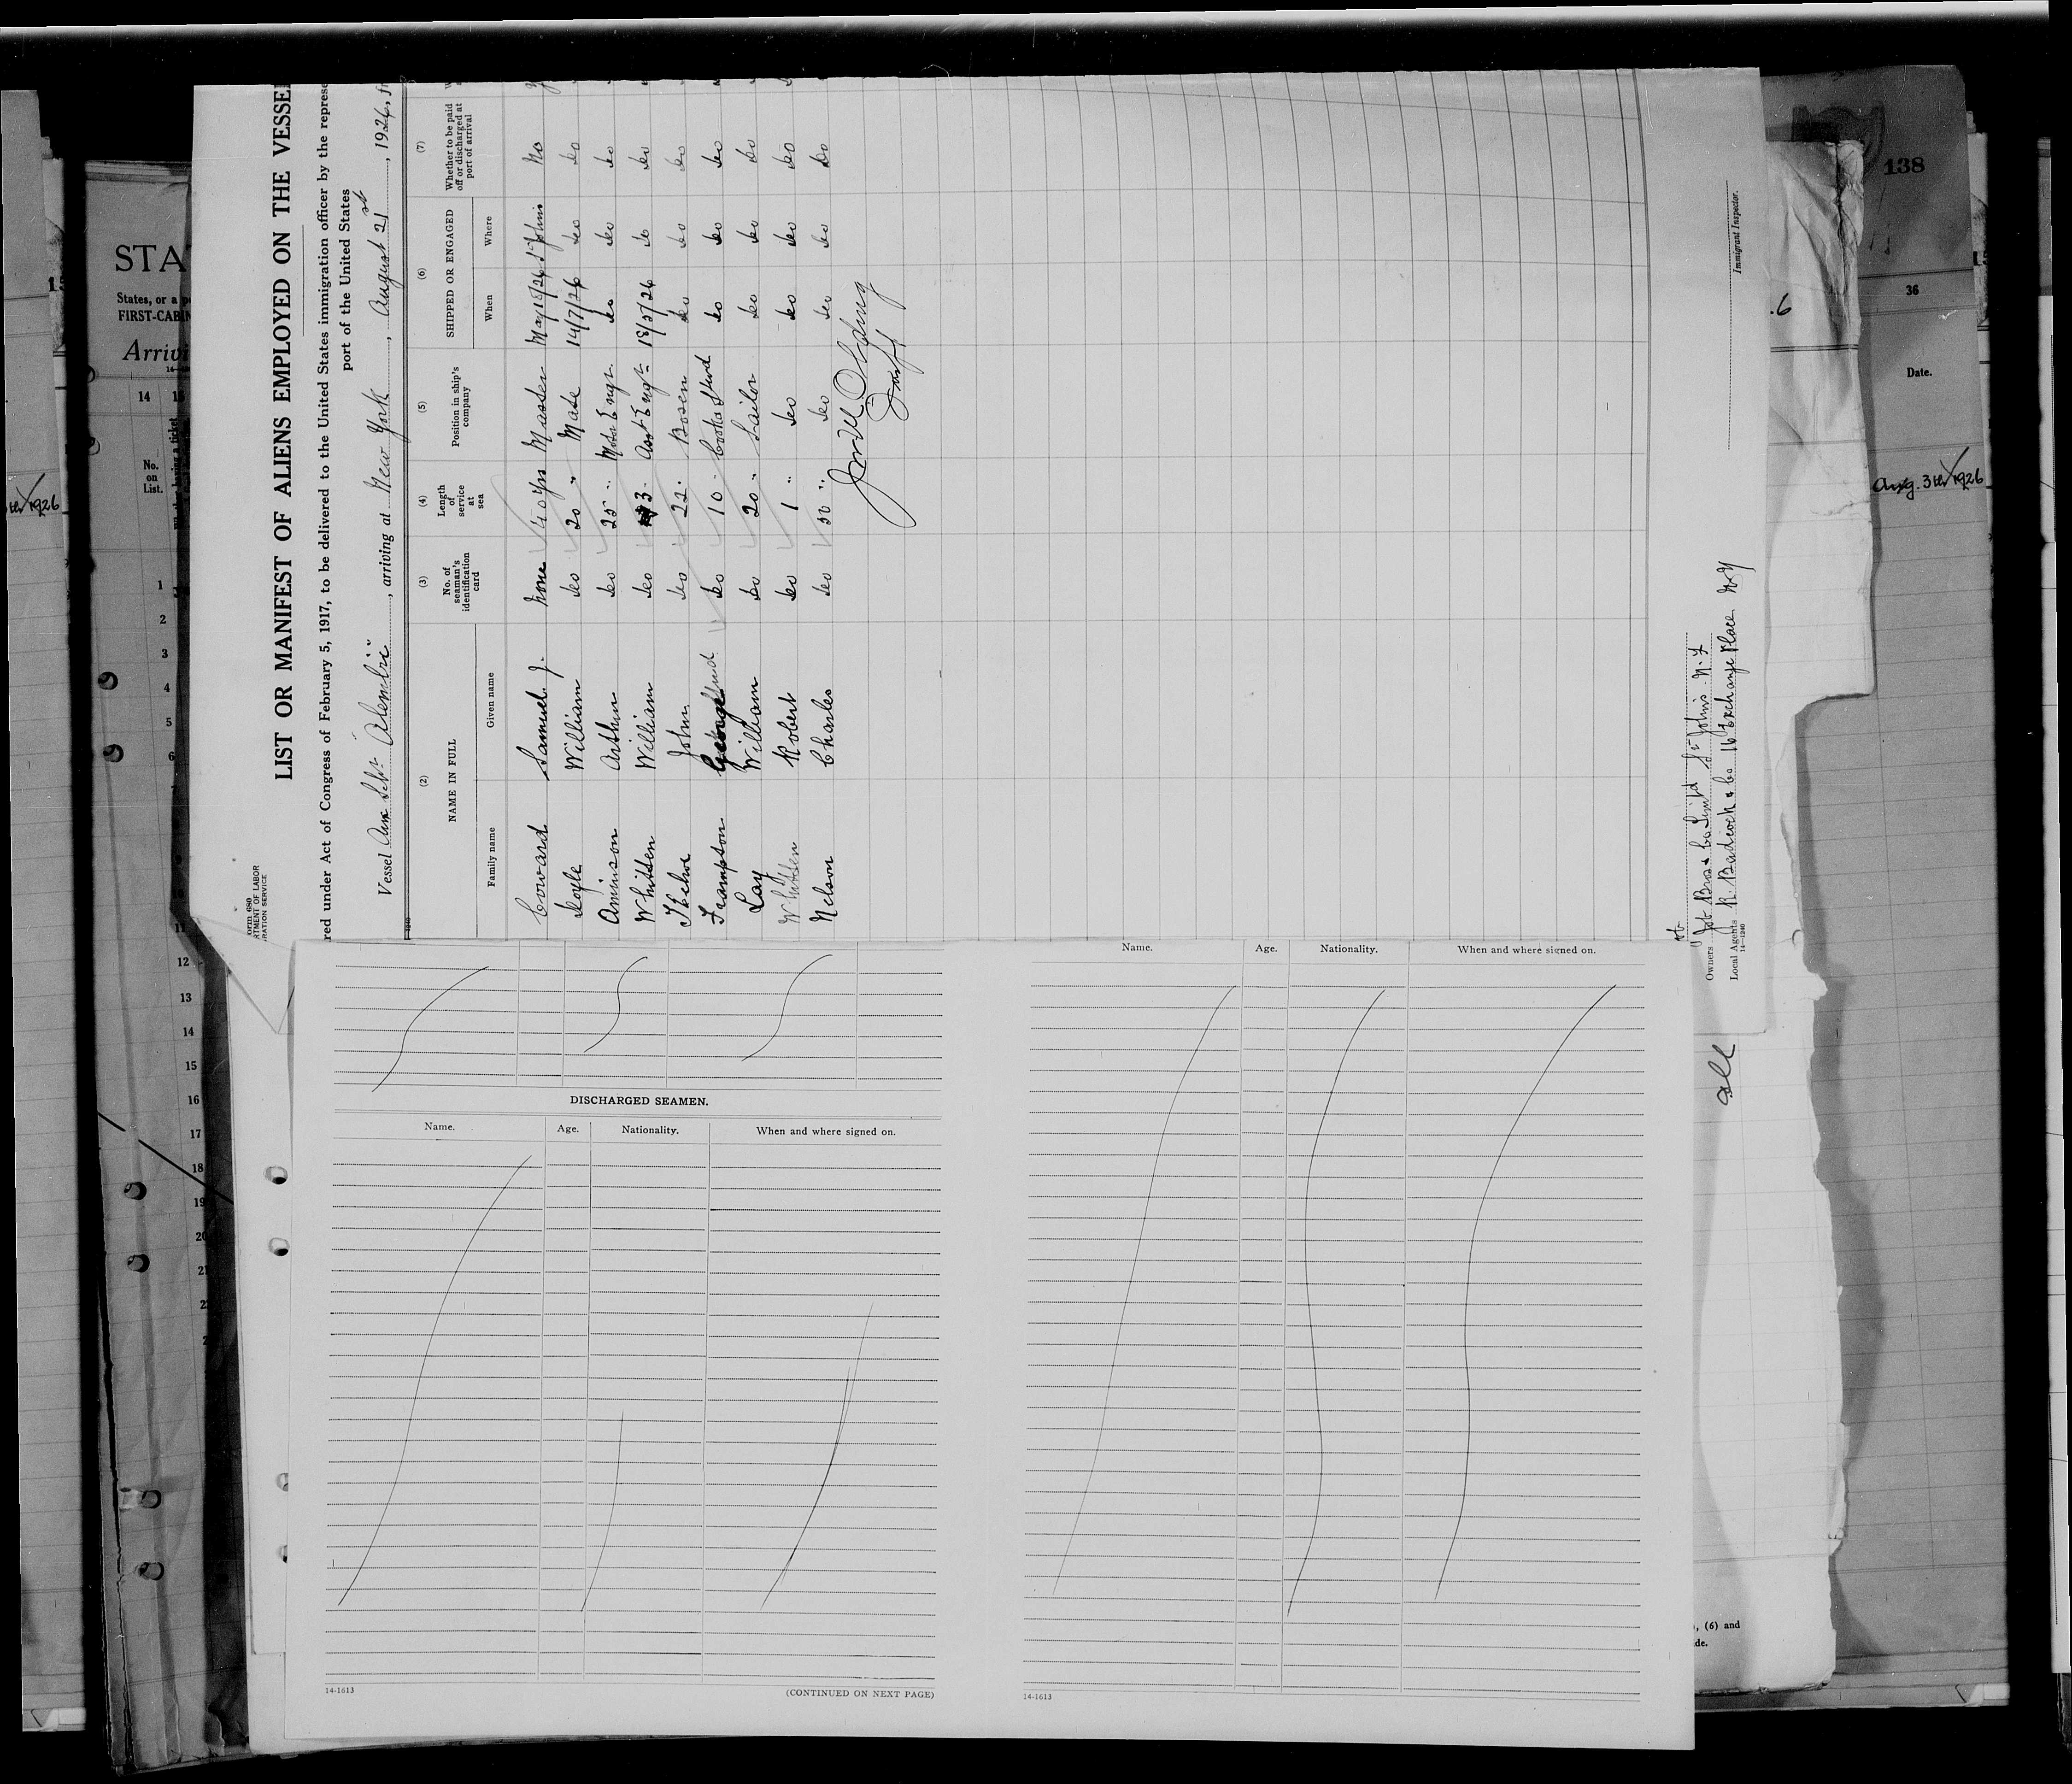 LIST OR MANIFEST OF ALIENS EMPLOYED ON THE VESSEL
red under Act of Congress of February 5, 1917, to be delivered to the United States immigration officer by the represe
port of the United States
Vessel Aux Schr "Alembic" , arriving at New York , August 21st , 1926, fr
(2) (3) (4) (5) (6) (7)
NAME IN FULL No. of seaman's identification card Length of service at sea Position in ship's company SHIPPED OR ENGAGED Whether to be paid off or discharged at port of arrival
Family name Given name When Where
Coward Samuel J. None 40 yrs Master May 18/26 St Johns No
Doyle William do 20 " Mate 14/7/26 do do
Arthur do 25 " Motor Engr do do do
Whitten William do 3 " Asst Engr 18/5/26 do do
John do 22 " Bosen do do do
Frampton George do 10 " Cook & Stwd do do do
Lay William do 20 " Sailor do do do
Whitten Robert do 1 " do do do do
Nelson Charles do 50 " do do do do
Immigrant Inspector.
Owners Job Bros & Co Limitd St Johns N.F.
Local Agents R. Badcock & Co 16 Exchange Place NY
14—1240
TMENT OF LABOR
RATION SERVICE
all
STA
States, or a p
FIRST-CABIN
Arrivi
14 15
No. on List.
1
2
3
4
5
6
11
12
13
14
15
16
17
18
19
20
21
138
36
Date.
Aug. 31st 1926
.6
, (6) and
de.
DISCHARGED SEAMEN.
Name. Age. Nationality. When and where signed on.
14-1613 (CONTINUED ON NEXT PAGE)
Name. Age. Nationality. When and where signed on.
14-1613